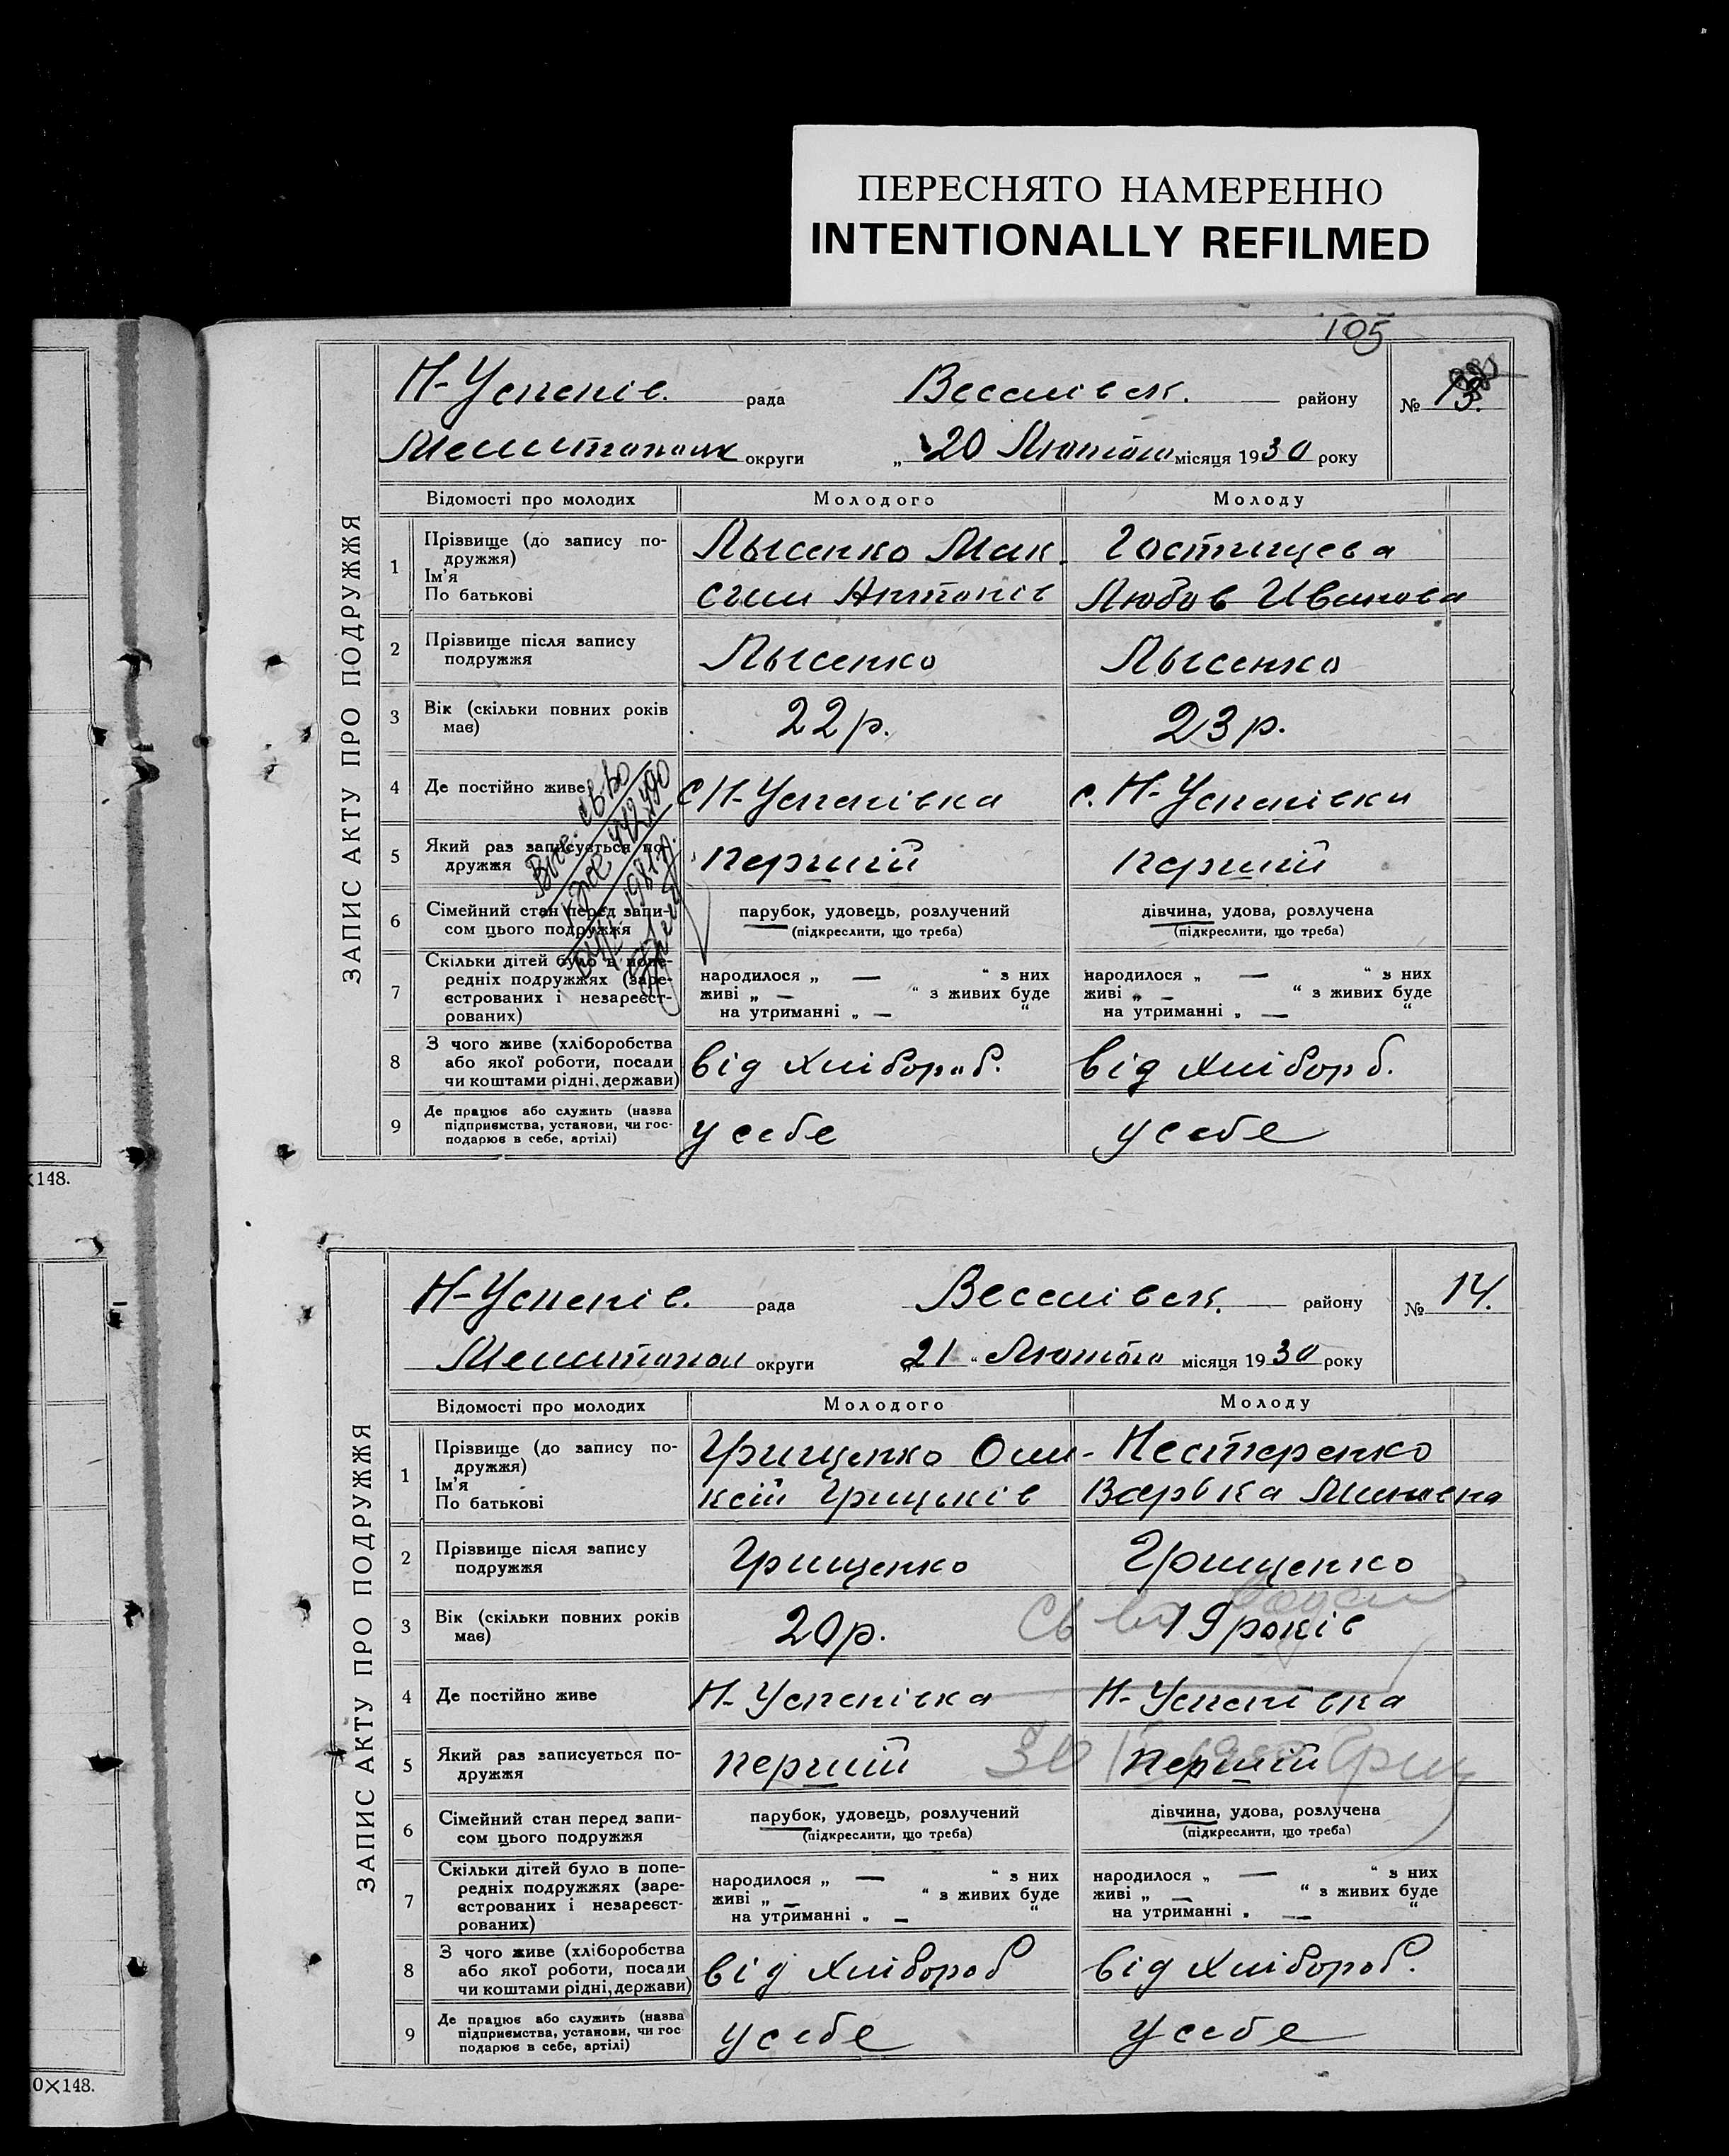 ПЕРЕСНЯТО НАМЕРЕННО
INTENTIONALLY REFILMED
105
Н-Успенів. рада Веселівск. району № 13.
округи „ 20 Лютого місяця 1930 року
ЗАПИС АКТУ ПРО ПОДРУЖЖЯ
Відомості про молодих Молодого Молоду
1 Прізвище (до запису по-
дружжя)
Ім'я
По батькові
Лысенко Мак-
сим Антонів
Гостищева
Любов Иванова
2 Прізвище після запису
подружжя
Лысенко Лысенко
3 Вік (скільки повних років
має)
22 р. 23 р.
4 Де постійно живе с Н-Успенівка с. Н-Успенівки
5 Який раз записується по-
дружжя
перший перший
6 Сімейний стан перед запи-
сом цього подружжя
парубок, удовець, розлучений
(підкреслити, що треба)
дівчина, удова, розлучена
(підкреслити, що треба)
7 Скільки дітей було в попе-
редніх подружжях (заре-
єстрованих і незареєст-
рованих)
народилося „ — “ з них
живі „ — “ з живих буде
на утриманні „ — “
народилося „ — “ з них
живі „ — “ з живих буде
на утриманні „ — “
8 З чого живе (хліборобства
або якої роботи, посади
чи коштами рідні, держави)
від хлібороб. від хлiборб.
9 Де працює або служить (назва
підприємства, установи, чи гос-
подарює в себе, артілі)
у себе у себе
×148.
Н-Успенів. рада Веселівск. району № 14.
Мелитопол округи „21“ Лютого місяця 1930 року
ЗАПИС АКТУ ПРО ПОДРУЖЖЯ
Відомості про молодих Молодого Молоду
1 Прізвище (до запису по-
дружжя)
Ім'я
По батькові
Грищенко Оли-
ксій Грицьків
Нестеренко
Варвка
2 Прізвище після запису
подружжя
Грищенко Грищенко
3 Вік (скільки повних років
має)
20 р. 19 років
4 Де постійно живе Н-Успенівка Н-Успенівка
5 Який раз записується по-
дружжя
перший перший
6 Сімейний стан перед запи-
сом цього подружжя
парубок, удовець, розлучений
(підкреслити, що треба)
дівчина, удова, розлучена
(підкреслити, що треба)
7 Скільки дітей було в попе-
редніх подружжях (заре-
єстрованих і незареєст-
рованих)
народилося „ — “ з них
живі „ — “ з живих буде
на утриманні „ — “
народилося „ — “ з них
живі „ — “ з живих буде
на утриманні „ — “
8 З чого живе (хліборобства
або якої роботи, посади
чи коштами рідні, держави)
від хлібороб від хлібороб.
9 Де працює або служить (назва
підприємства, установи, чи гос-
подарює в себе, артілі)
у себе у себе
0×148.